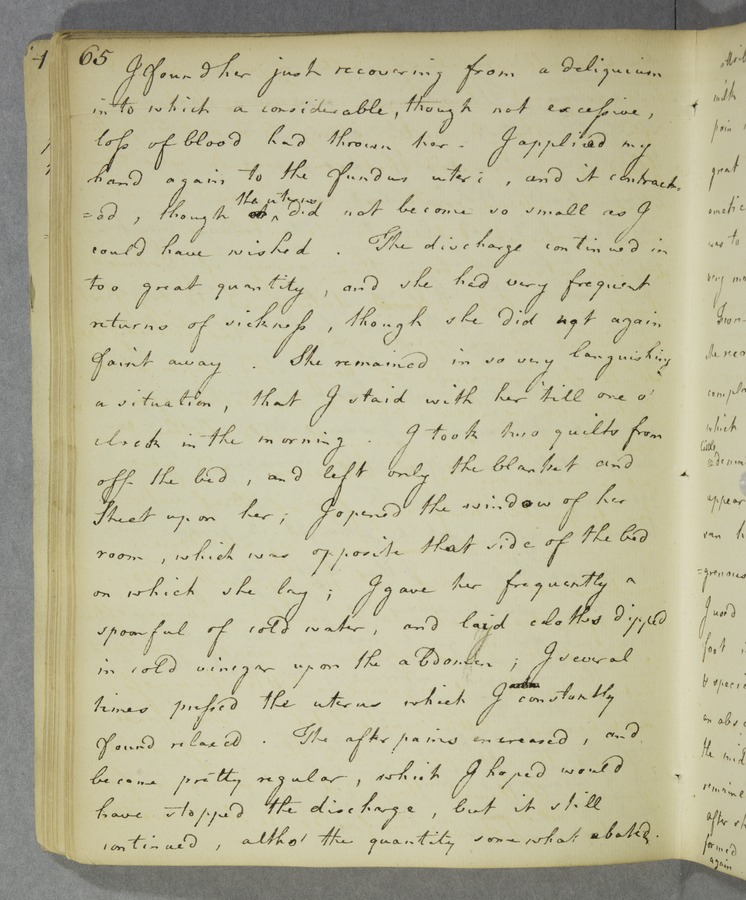 65
I found her just recovering from a deliquium
into which a considerable, though not excessive,
loss of blood had thrown her. I applied my
hand again to the fundus uteri, and it contract-
=ed, though the uterus did not become so small as I
could have wished. The discharge continued in
too great quantity, and she had very frequent
returns of sickness, though she did not again
faint away. She remained in so very languishing
a situation, that I staid with her 'till one o'
clock in the morning. I took two quilts from
off the bed, and left only the blanket and
Sheet upon her; I opened the window of her
room, which was opposite that side of the bed
on which she lay; I gave her frequently a
spoonful of cold water, and laid cloths dipped
in cold vinegar upon the abdomen; I several
times pressed the uterus which I constantly
found relaxed. The after pains encreased, and
became pretty regular, which I hoped would
have stopped the discharge, but it still
continued, altho' the quantity somewhat abated.
milk
pain
great
was to
very
which
little
appear
I used
foot
an abs
the mid
after
formed
again